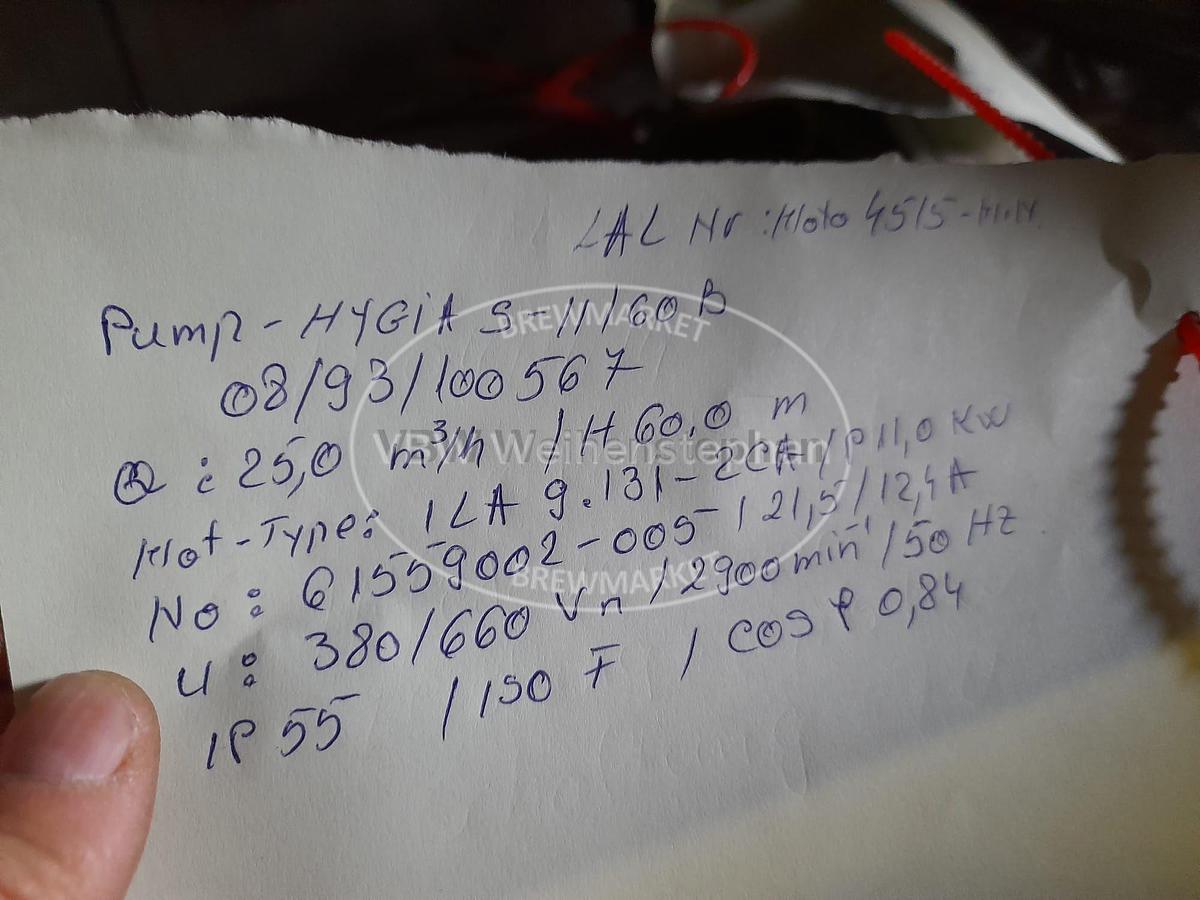 LAL Nr : Moto 4515-M.M.
Pump - HYGiA S-11/60 B
08/93/100567
Q : 25,0 m³/h / H 60.0 m
Mot-Type: 1LA 9.131-2CA / P 11,0 KW
No : 61559002-005 / 21,5 / 12,4 A
U : 380/660 Vn / 2900 min⁻¹ / 50 HZ
IP 55 / ISO F / cos φ 0,84
BREWMARKET
VBW Weihenstephen
BREWMARKET